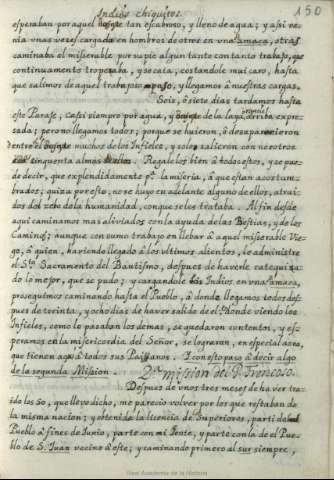 Indios chiquitos.
150
esperaban por aquel tan escabroso, y lleno de agua; y assi ve
nia unas vezes cargado en hombros de otros en una amaca, otras
caminaba el miserable por su pie algun tanto con tanto trabajo, que
continuamente tropezaba, y se caia, costandole mui caro, hasta
que salimos de aquel trabajoso passo, y llegamos à nuestras cargas.
Seis, ò siete dias tardamos hasta
este Parage, casi siempre por agua, y de la laya arriba expre-
sada; pero no llegamos todos; porque se huieron, ò desaparecieron
dentro el muchos de los Infieles, y solos salieron con nosotros
cinquenta almas. Regalelos bien à todos estos, y se pue-
de decir, que explendidamente pa. la miseria, à que estan acostum-
brados; quiza por esto, no se huyò en adelante alguno de ellos, atrai-
dos del zelo de la humanidad, con que se les trataba. Al fin desde
aqui caminamos mas aliviados con la ayuda de las Bestias, y de los
Caminos; aunque con sumo trabajo en llebar à aquel miserable Vie-
go, à quien, haviendo llegado à los ultimos alientos, le administrè
el Sto. Sacramento del Bautismo, despues de haverle catequiza-
do lo mejor, que se pudo; y cargandole los Indios en una amaca,
proseguimos caminando hasta el Pueblo, à donde llegamos todos des-
pues de treinta, y ocho dias de haver salido de el. Donde viendo los
Infieles, como lo pasaban los demas, se quedaron contentos, y es-
peramos en la misericordia del Señor, se lograran, en especial aora,
que tienen aqui à todos sus Paisanos. Y con esto paso à decir algo
de la segunda Mission. 2da. mission del P. Troncoso.
Despues de unos tres meses de haver tra-
ido los 50, que llevo dicho, me pareciò volver por los que restaban de
la misma nacion; y obtenida la licencia de Superiores, parti de
Pueblo à fines de Junio, parte con mi Gente, y parte con la de el Pue-
blo de S. Juan vecino à este; y caminando primero al sur siempre,
Real Academia de la Historia